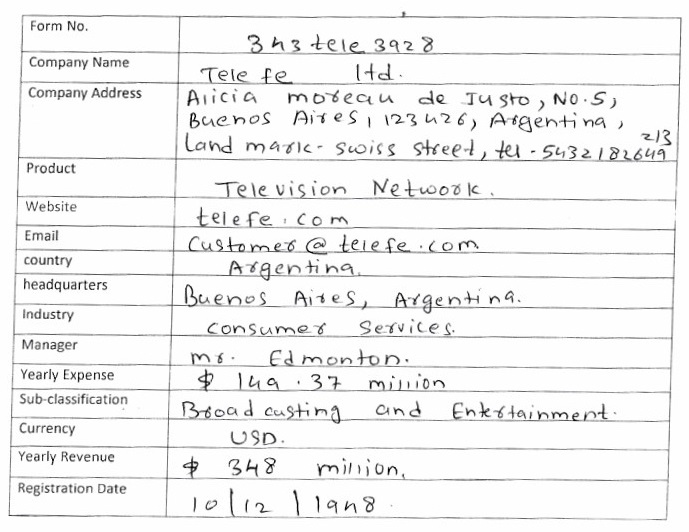 Form No. 343 tele 3928
Company Name Tele fe ltd.
Company Address Alicia moreau de Justo, No.5,
Buenos Aires, 123426, Argentina,
Land mark - swiss street, tel - 5432182649
213
Product Television Network.
Website telefe.com
Email Customer@telefe.com
country Argentina.
headquarters Buenos Aires, Argentina.
Industry consumer Services.
Manager mr. Edmonton.
Yearly Expense $ 149.37 million
Sub-classification Broad casting and Entertainment.
Currency USD.
Yearly Revenue $ 348 million.
Registration Date 10/12/1948.